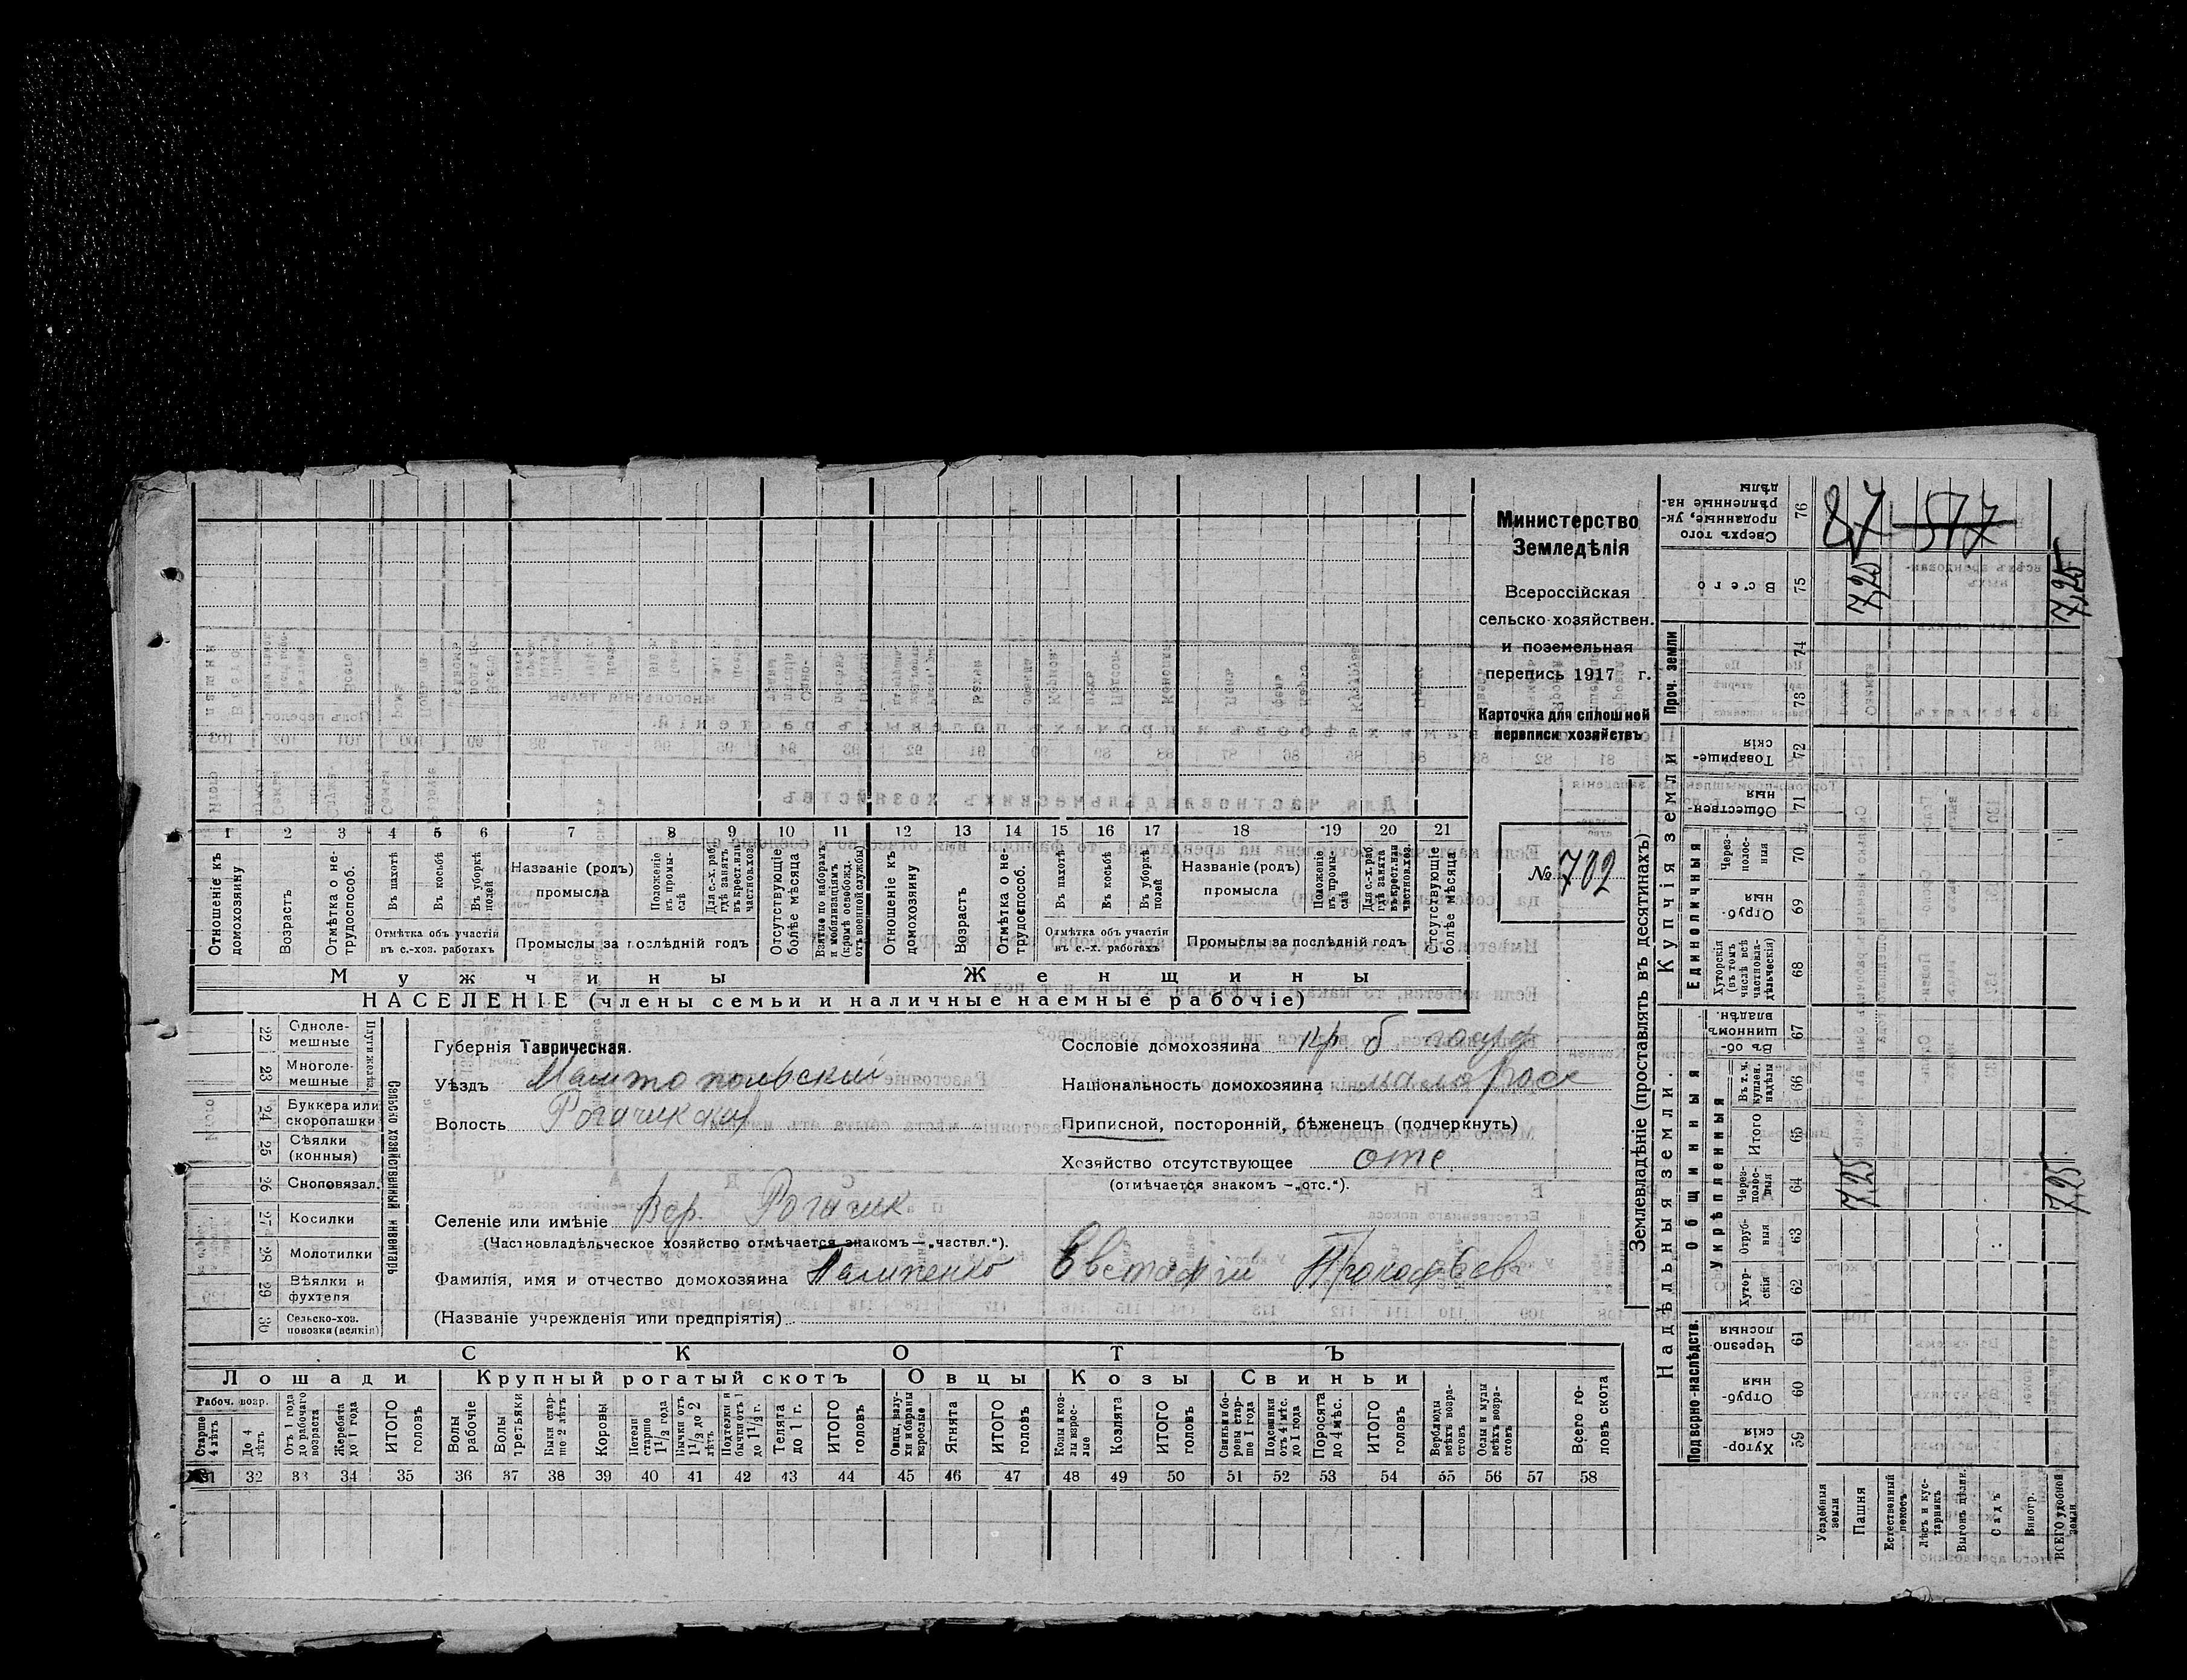 Министерство
Земледѣлія
Всероссійская
сельско-хозяйствен.
и поземельная
перепись 1917 г.
Карточка для сплошной
переписи хозяйствъ
№ 702
1 2 3 4 5 6 7 8 9 10 11 12 13 14 15 16 17 18 19 20 21
Отношеніе къ домохозяину
Возрастъ
Отмѣтка о не-трудоспособ.
Въ пахотѣ
Въ косьбѣ
Въ уборкѣ полей
Отмѣтка объ участіи въ с.-хоз. работахъ
Названіе (родъ) промысла
Положеніе въ промы-слѣ
Для с.-х. раб. гдѣ занятъ въ крест. или частнов. хоз.
Промыслы за послѣдній годъ
Отсутствующіе болѣе мѣсяца
Взятые по наборамъ и мобилизаціямъ (кромѣ освобожд. отъ военной службы)
Отношеніе къ домохозяину
Возрастъ
Отмѣтка о не-трудоспособ.
Въ пахотѣ
Въ косьбѣ
Въ уборкѣ полей
Отмѣтка объ участіи въ с.-х. работахъ
Названіе (родъ) промысла
Положеніе въ промы-слѣ
Для с.-х. раб. гдѣ занята въ крест. или частнов. хоз.
Промыслы за послѣдній годъ
Отсутствующіе болѣе мѣсяца
Мужчины
Женщины
НАСЕЛЕНІЕ (члены семьи и наличные наемные рабочіе)
Сельско хозяйственный инвентарь
22 Одноле-мешные
23 Многоле-мешные
24 Буккера или скоропашки
25 Сѣялки (конныя)
26 Сноповязал.
27 Косилки
28 Молотилки
29 Вѣялки и фухтеля
30 Сельско-хоз. повозки (всякія)
Губернія Таврическая.
Уѣздъ Мелитопольскій
Волость Рогачикская
Селеніе или имѣніе Вер. Рогачик
(Частновладѣльческое хозяйство отмѣчается знакомъ—„частвл.“).
Фамилія, имя и отчество домохозяина Евстафій Прокофьев
(Названіе учрежденія или предпріятія)
Сословіе домохозяина кр. б госуд
Національность домохозяина малорос
Приписной, посторонній, бѣженецъ (подчеркнуть)
Хозяйство отсутствующее отс
(отмѣчается знакомъ —„отс.“).
СКОТЪ
Лошади
Крупный рогатый скотъ
Овцы
Козы
Свиньи
Рабоч. возр.
Старше 4 лѣтъ
До 4 лѣтъ
Отъ 1 года до рабочаго возраста
Жеребята до 1 года
ИТОГО головъ
Волы рабочіе
Волы третьяки
Быки стар-ше 2 лѣтъ
Коровы
Нетели старше 1 1/2 года
Бычки отъ 1 1/2 до 2 лѣтъ
Подтелки и бычки отъ 1 до 1 1/2 г.
Телята до 1 г.
ИТОГО головъ
Овцы, валу-хи и бараны взрослые
Ягнята
ИТОГО головъ
Козы и коз-лы взрос-лые
Козлята
ИТОГО головъ
Свиньи и бо-ровы стар-ше 1 года
Подсвинки отъ 4 мѣс. до 1 года
Поросята до 4 мѣс.
ИТОГО головъ
Верблюды всѣхъ возра-стовъ
Ослы и мулы всѣхъ возра-стовъ
Всего го-ловъ скота
31 32 33 34 35 36 37 38 39 40 41 42 43 44 45 46 47 48 49 50 51 52 53 54 55 56 57 58
Землевладѣніе (проставлять въ десятинахъ)
Надѣльныя земли.
Купчія земли
Проч. земли
Подворно-наслѣдств.
Общинныя
Укрѣпленныя
Единоличныя
76 Сверхъ того проданные, ук-рѣпленные на-дѣлы
75 Всего
74
73
72 Товарище-скія
71 Обществен-ныя
70 Через-полос-ныя
69 Отруб-ныя
68 Хуторскія (въ томъ числѣ всѣ частновла-дѣльческія)
67 Въ об-щинномъ владѣн.
66 Въ т. ч. куплен. надѣлы
65 Итого
64 Через-полос-ныя
63 Отруб-ныя
62 Хутор-скія
61 Черезпо-лосныя
60 Отруб-ныя
59 Хутор-скія
Усадебныя земли
Пашня
Естественный покосъ
Лѣсъ и кус-тарникъ
Выгонъ цѣлин.
Садъ
Виногр.
ВСЕГО удобной земли
87 517
7,25 7,25
7,25 7,25